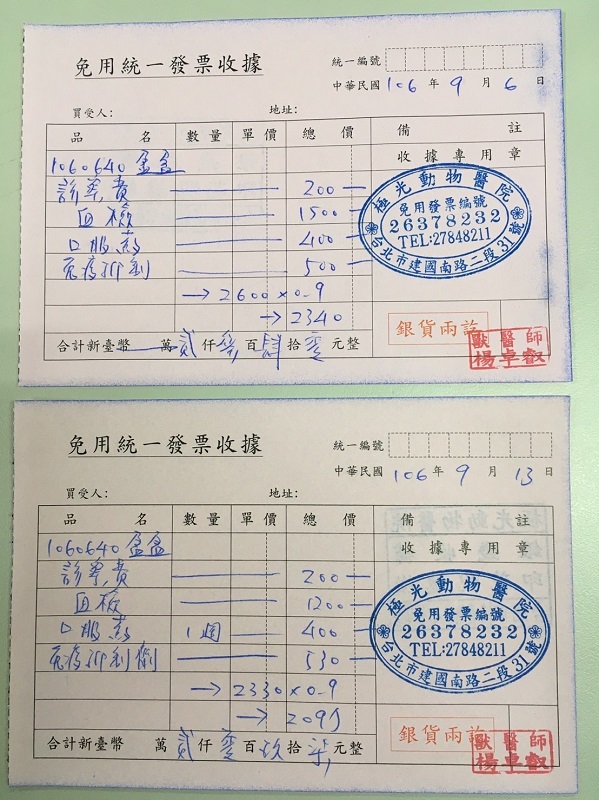 免用統一發票收據
統一編號
中華民國 106 年 9 月 6 日
買受人： 地址：
品名 數量 單價 總價 備註
收據專用章
1060640 盈盈
診察費 200
血檢 1500
口服藥 400
免疫抑制 500
→ 2600 x 0.9
→ 2340
極光動物醫院
免用發票編號
26378232
TEL:27848211
台北市建國南路二段31號
銀貨兩訖
獸醫師
楊卓叡
合計新臺幣 萬 貳 仟 參 百 肆 拾 零 元整
免用統一發票收據
統一編號
中華民國 106 年 9 月 13 日
買受人： 地址：
品名 數量 單價 總價 備註
收據專用章
1060640 盈盈
診察費 200
血檢 1200
口服藥 1週 400
免疫抑制劑 530
→ 2330 x 0.9
→ 2097
極光動物醫院
免用發票編號
26378232
TEL:27848211
台北市建國南路二段31號
銀貨兩訖
獸醫師
楊卓叡
合計新臺幣 萬 貳 仟 零 百 玖 拾 柒 元整